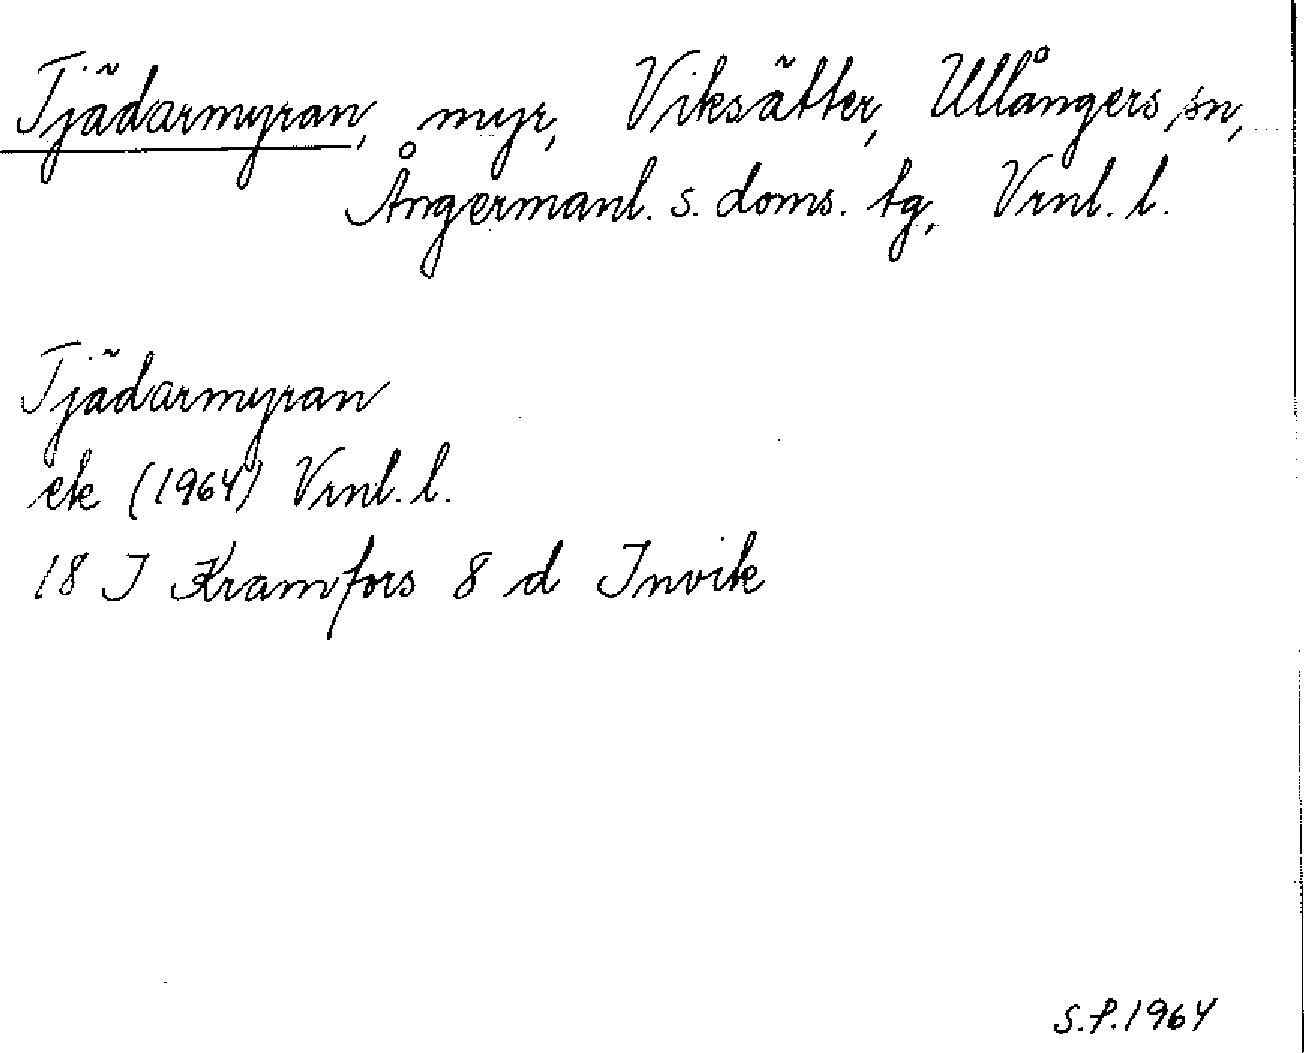 Tjädarmyran, myr, Viksätter, Ullångers sn,
Ångermanl. s. doms. tg, Vrnl. l.
Tjädarmyran
ek (1964) Vrnl. l.
18 I Kramfors 8 d Invik
S.P.1964